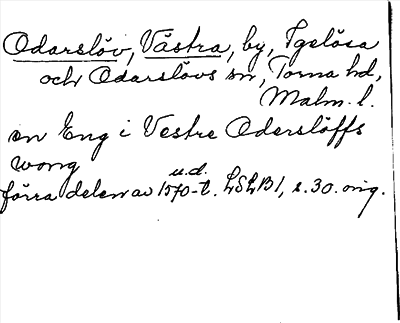 Odarslöv, Västra, by, Igelösa
och Odarslövs sn, Torna hd,
Malm. l.
en Eng i Vestre Oderslöffs
wong
u.d.
förra delen av 1570-t. LSLB1, s. 30. orig.